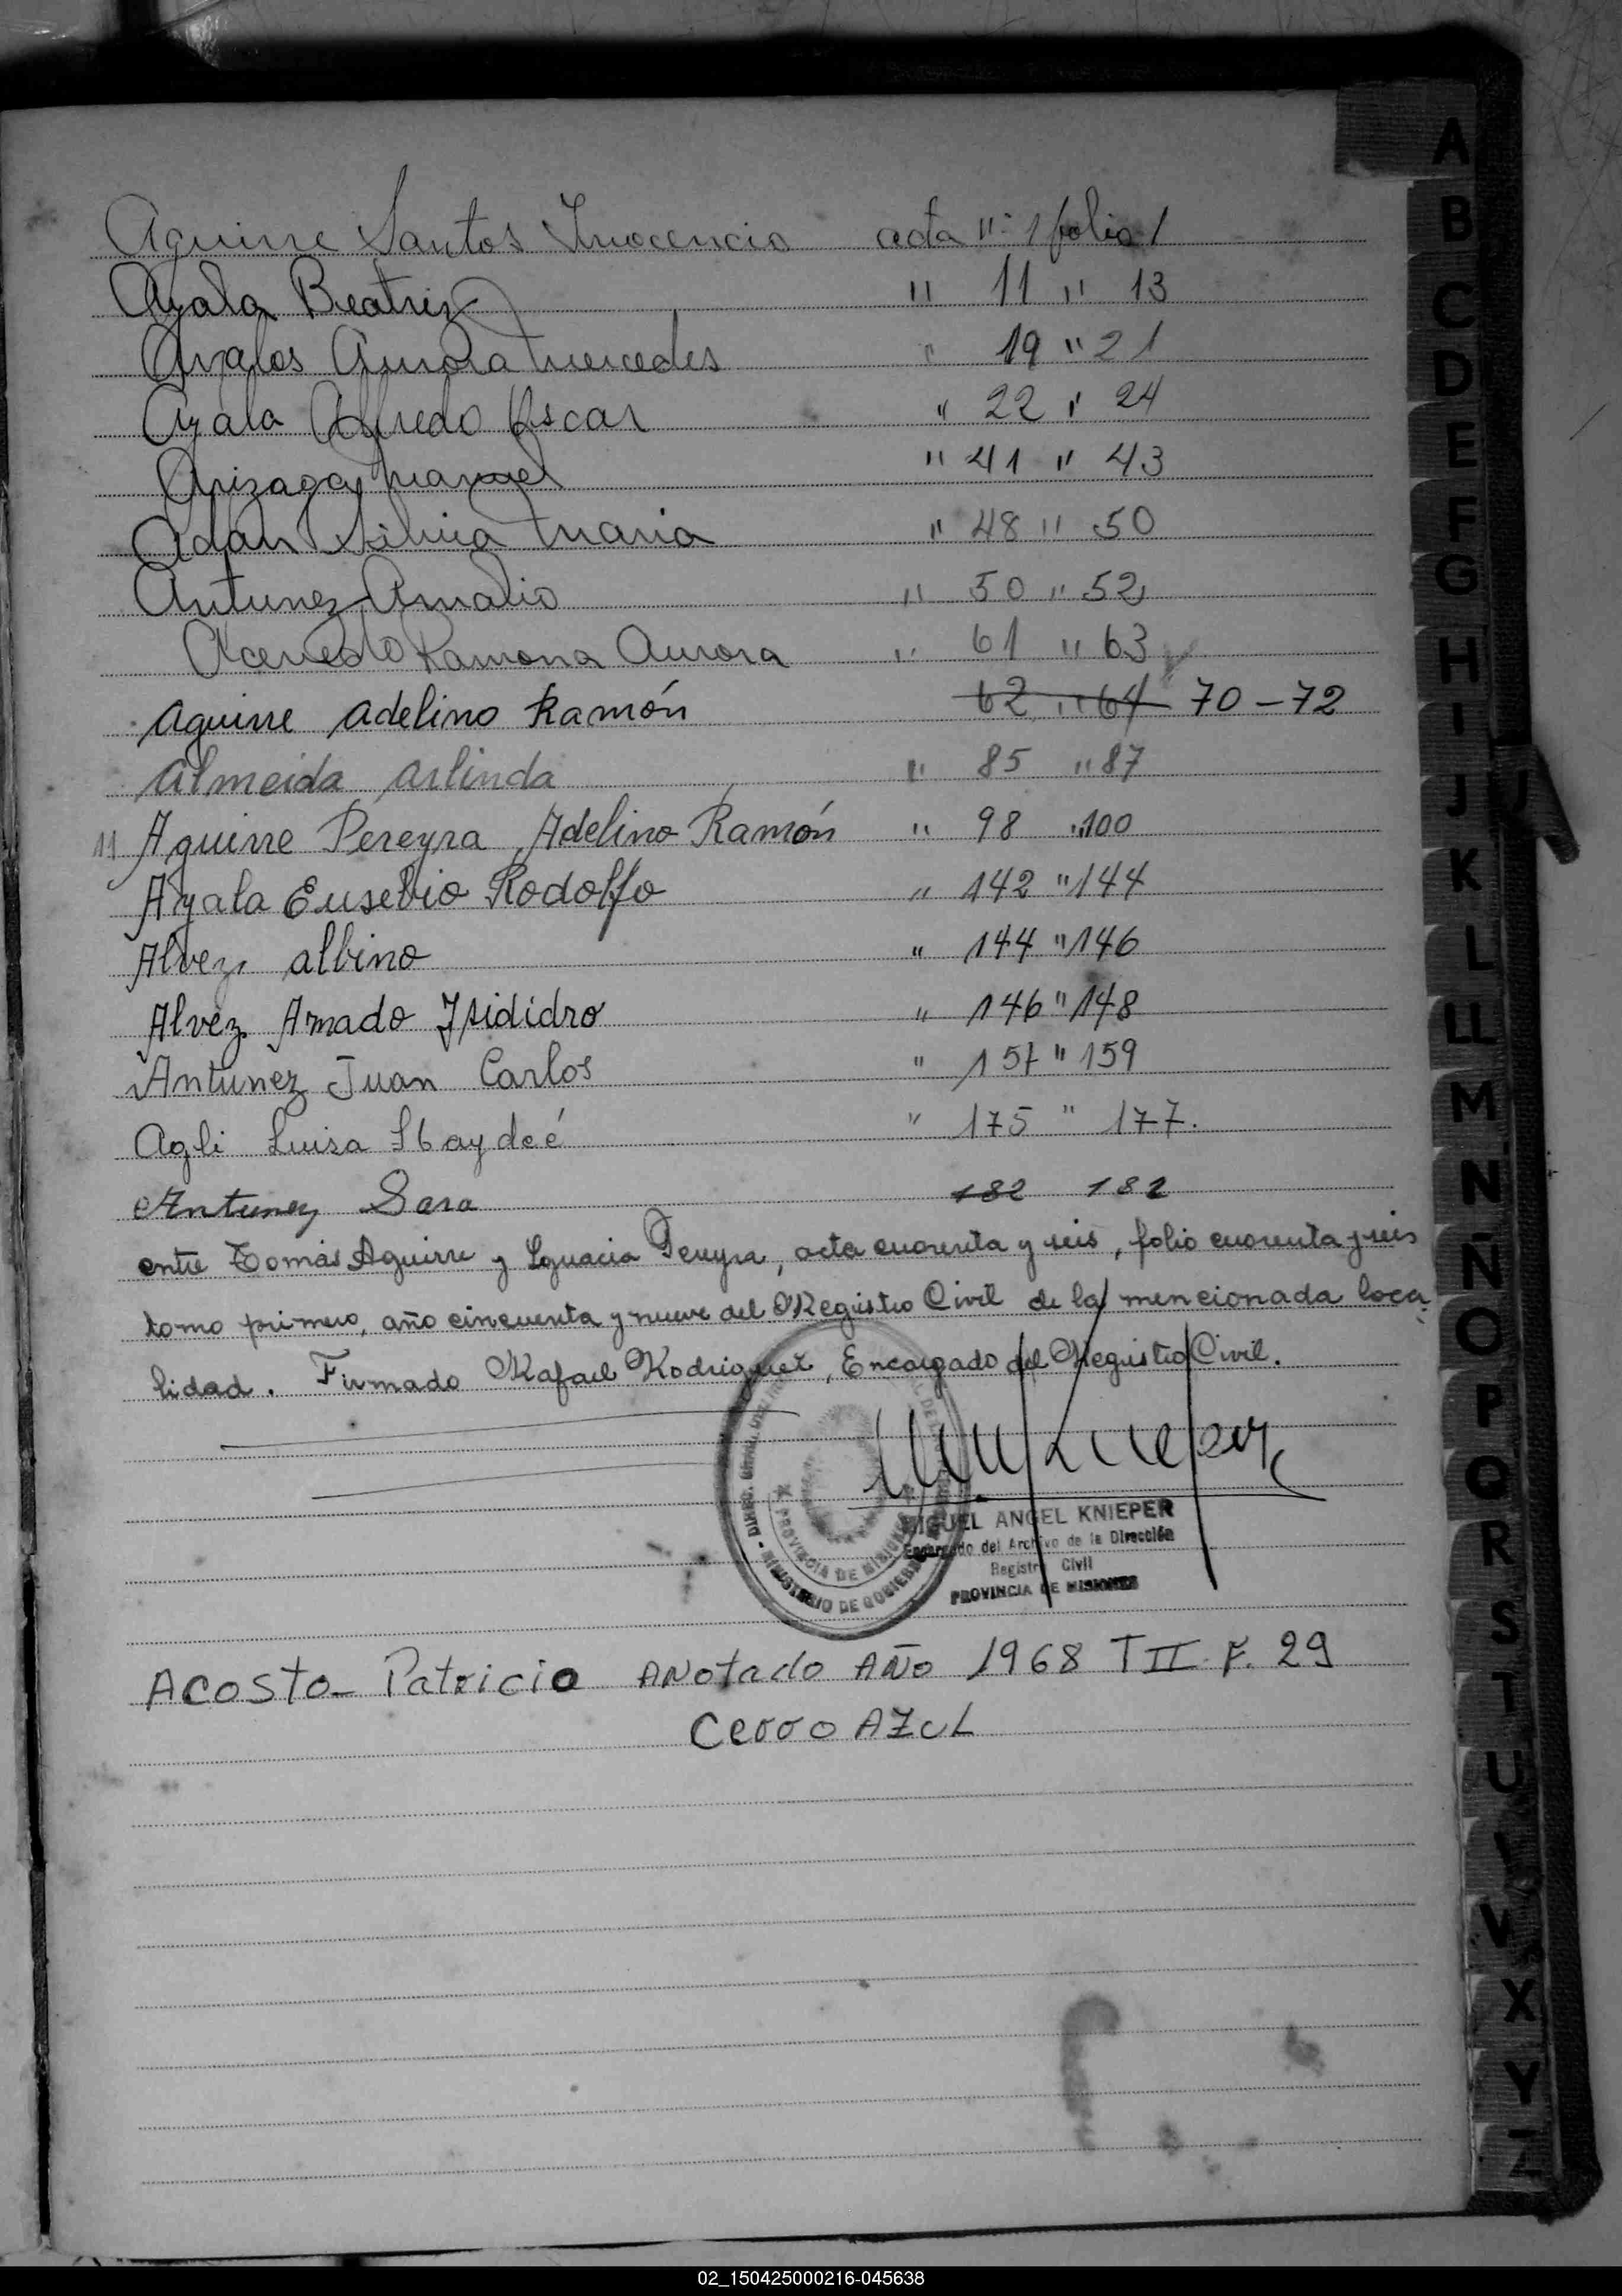 Aguirre Santos Inocencio acta "- 1 folio 1
Ayala Beatriz " 11 " 13
Avalos Aurora Mercedes " 19 " 21
Ayala Alfredo Oscar " 22 " 24
Arizaga Manuel " 41 " 43
Adan Silvia Maria " 48 " 50
Antunez Amalio " 50 " 52
Acevedo Ramona Aurora " 61 " 63
Aguirre Adelino Ramón 62 " 64 70-72
Almeida Arlinda " 85 " 87
11 Aguirre Pereyra, Adelino Ramón " 98 " 100
Ayala Eusebio Rodolfo " 142 " 144
Alvez albino " 144 " 146
Alvez Amado Isididro " 146 " 148
Antunez Juan Carlos " 157 " 159
Agli Luisa Haydeé " 175 " 177.
Antunez Sara 182 182
entre Tomás Aguirre y Ignacia Pereyra, acta cuarenta y seis, folio cuarenta y seis
tomo primero, año cincuenta y nueve del Registro Civil de la mencionada loca-
lidad. Firmado Rafael Rodriguez, Encargado del Registro Civil.
MIGUEL ANGEL KNIEPER
Encargado del Archivo de la Dirección
Registro Civil
PROVINCIA DE MISIONES
PROVINCIA DE MISIONES
MINISTERIO DE GOBIERNO
Acosta- Patricio Anotado AÑO 1968 T II F. 29
Cerro AZUL
A
B
C
D
E
F
G
H
I
J
K
L
LL
M
N
Ñ
O
P
Q
R
S
T
U
V
X
Y
Z
02_150425000216-045638